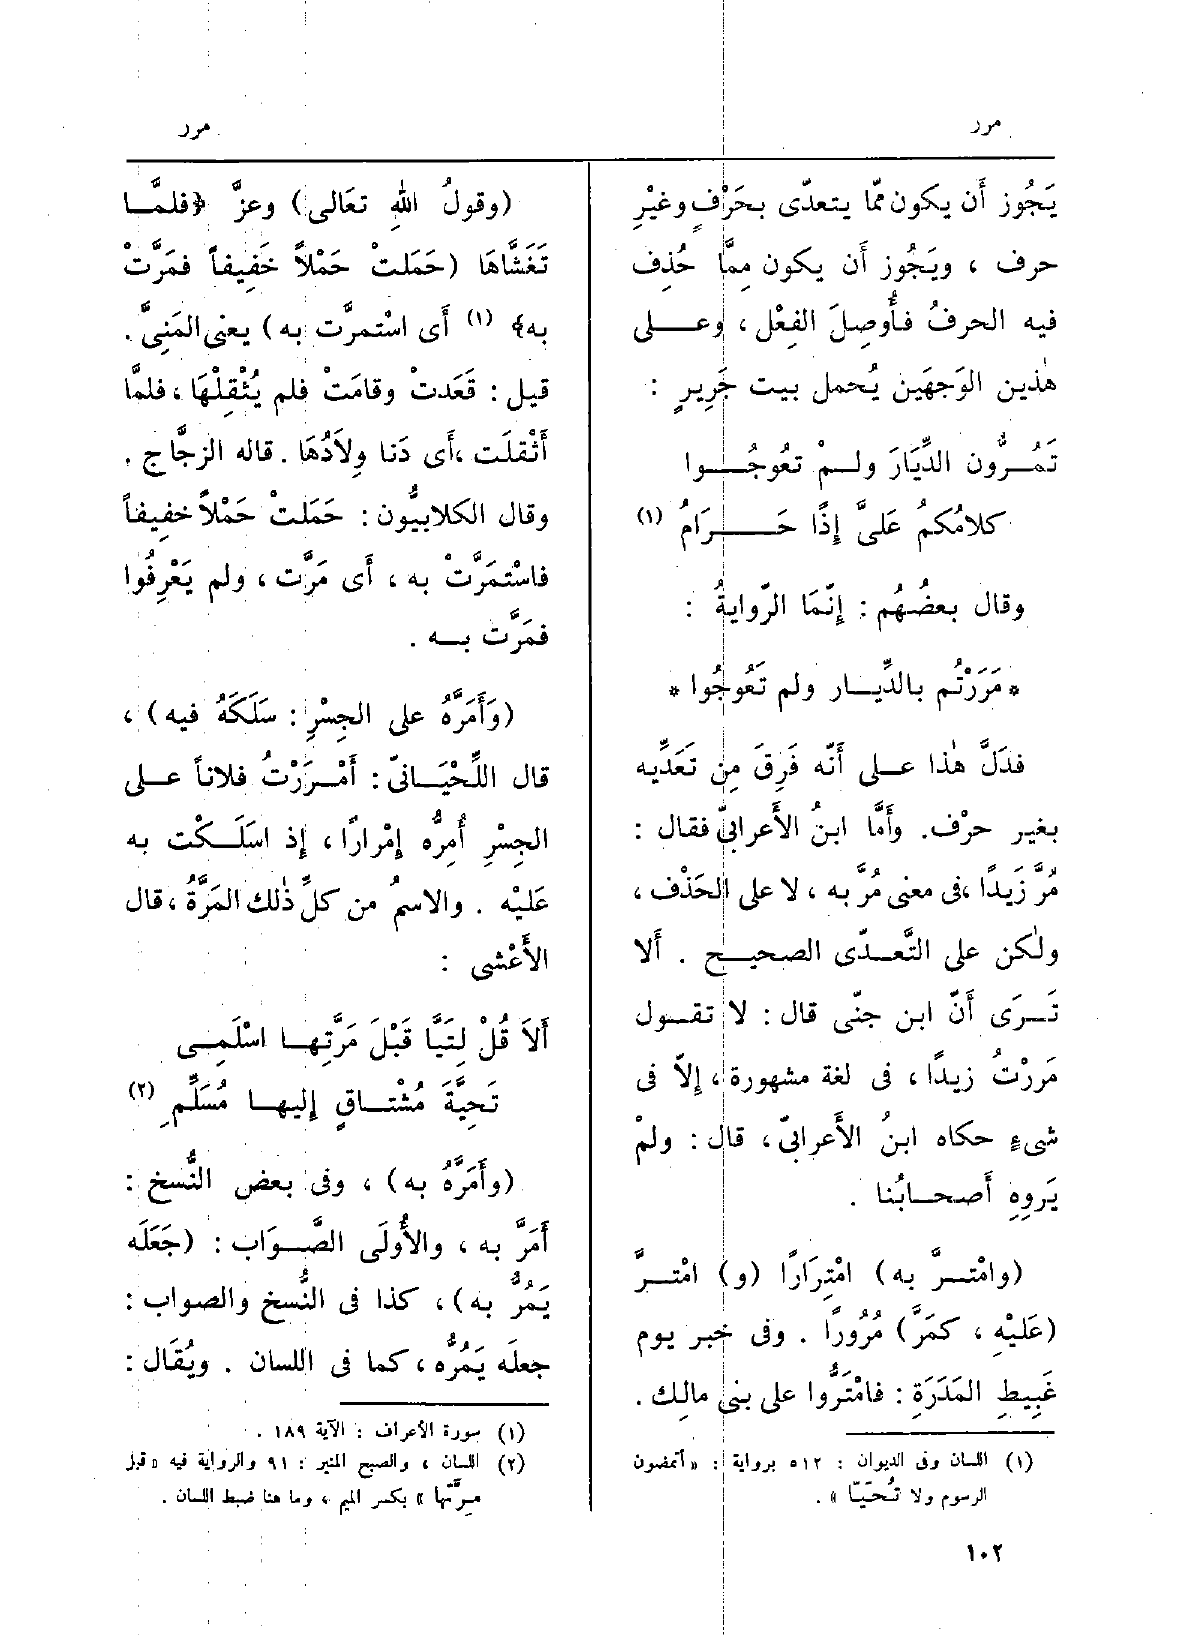 مرر
مرر
يَجُوز أَن يكون ممّا يتعدّى بحَرْفٍ وغيْرِ
حرف ، ويَجُوز أَن يكون مِمَّا حُذِف
فيه الحرفُ فأُوصِلَ الفِعْل ، وعلى
هٰذين الوَجهَين يُحمل بيت جَرِيرٍ :
تَمُرُّون الدِّيَارَ ولمْ تعُوجُوا
كلامُكمُ عَلىَّ إِذًا حَرَامُ (١)
وقال بعضُهُم : إِنّمَا الرّوايةُ :
* مَرَرْتُم بالدِّيار ولم تَعُوجُوا *
فدَلَّ هٰذا على أَنّه فَرِقَ مِن تَعَدِّيه
بغير حرْف. وأَمَّا ابنُ الأَعرابىّ فقال :
مُرَّ زَيدًا ، فى معنى مُرَّ به ، لا على الحَذْف ،
ولٰكن على التَّعدّى الصحيح . أَلا
تَرَى أَنّ ابن جنّى قال : لا تقول
مَررْتُ زيدًا ، فى لغة مشهورة ، إِلاّ فى
شىءٍ حكاه ابنُ الأَعرابىّ ، قال : ولمْ
يَروِهِ أَصحابُنا .
(وامْترَّ به) امْتِرَارًا (و) امْترَّ
(عَلَيْهِ ، كمَرَّ) مُرُورًا . وفى خبر يوم
غَبِيطِ المَدَرَةِ : فامْتَرُّوا على بنى مالِك .
(١) اللسان وفى الديوان : ٥١٢ برواية : « أتمضون
الرسوم ولا تُحَيّا » .
(وقولُ اللهِ تعَالى) وعزَّ ﴿فلمَّا
تَغَشَّاهَا (حَمَلتْ حَمْلاً خَفِيفاً فمَرَّتْ
به﴾ (١) أَى اسْتمرَّت به) يعنى المَنِىَّ .
قيل : قَعَدتْ وقامَتْ فلم يُثْقِلْهَا ، فلمَّا
أَثْقلَت ، أَى دَنا وِلاَدُهَا . قاله الزجَّاج .
وقال الكلابيُّون : حَمَلتْ حَمْلاً خفِيفاً
فاسْتمَرَّتْ به ، أَى مَرَّت ، ولم يَعْرِفُوا
فمَرَّت به .
(وَأَمَرَّهُ على الجِسْرِ : سَلَكَهُ فيه) ،
قال اللِّحْيَانىّ : أَمْرَرْتُ فلاناً على
الجِسْرِ أُمِرُّه إِمْرارًا ، إِذ اسَلَكْت به
عَليْه . والاسمُ من كلِّ ذٰلك المَرَّةُ ، قال
الأَعْشى :
أَلاَ قُلْ لِتَيَّا قَبْلَ مَرَّتِها اسْلَمِى
تَحِيَّةَ مُشْتاقٍ إِليها مُسَلِّمِ (٢)
(وأَمَرَّهُ به) ، وفى بعض النُّسخ :
أَمَرَّ به ، والأُولَى الصَّوَاب : (جَعَلَه
يَمُرُّ به) ، كذا فى النُّسخ والصواب :
جعلَه يَمُرُّه ، كما فى اللسان . ويُقَال :
(١) سورة الأعراف : الآية ١٨٩ .
(٢) اللسان ، والصبح المنير : ٩١ والرواية فيه « قبل
مِرَّتها » بكسر الميم ، وما هنا ضبط اللسان .
١٠٢